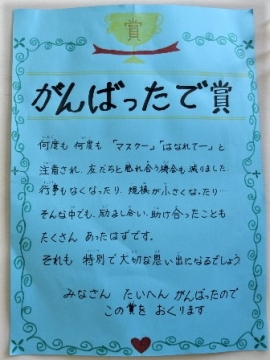 賞
がんばったで賞
何度も 何度も 「マスクー」「はなれてー」と
注意され、友だちと触れ合う機会も減りました。
行事もなくなったり、規模が小さくなったり…
そんな中でも、励まし合い、助け合ったことも
たくさん あったはずです。
それも 特別で大切な思い出になるでしょう
みなさん たいへん がんばったので
この賞を おくります